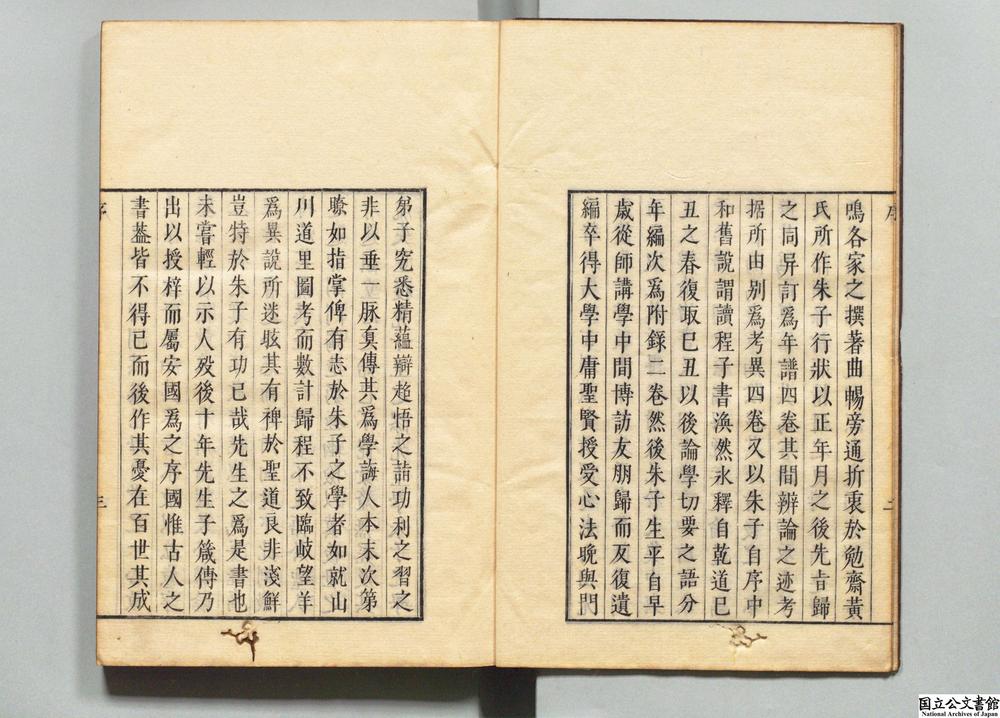 序
鳴各家之撰著曲暢旁通折衷於勉齋黃
氏所作朱子行狀以正年月之後先㫖歸
之同异訂爲年譜四卷其間辨論之迹考
据所由别爲考異四卷又以朱子自序中
和舊說謂讀程子書渙然氷釋自乾道巳
丑之春復取巳丑以後論學切要之語分
年編次爲附錄二卷然後朱子生平自早
歲從師講學中間博訪友朋歸而反復遺
編卒得大學中庸聖賢授受心法晚與門
二
弟子究悉精蘊辯超悟之詰功利之習之
非以垂一脉眞傳其爲學誨人本末次第
瞭如指掌俾有志於朱子之學者如就山
川道里圖考而數計歸程不致臨岐望羊
爲異說所迷眩其有禆於聖道良非淺鮮
豈特於朱子有功已哉先生之爲是書也
未嘗輕以示人歿後十年先生子箴傳乃
出以授梓而屬安國爲之序國惟古人之
書葢皆不得已而後作其憂在百世其成
序
三
国立公文書館
National Archives of Japan